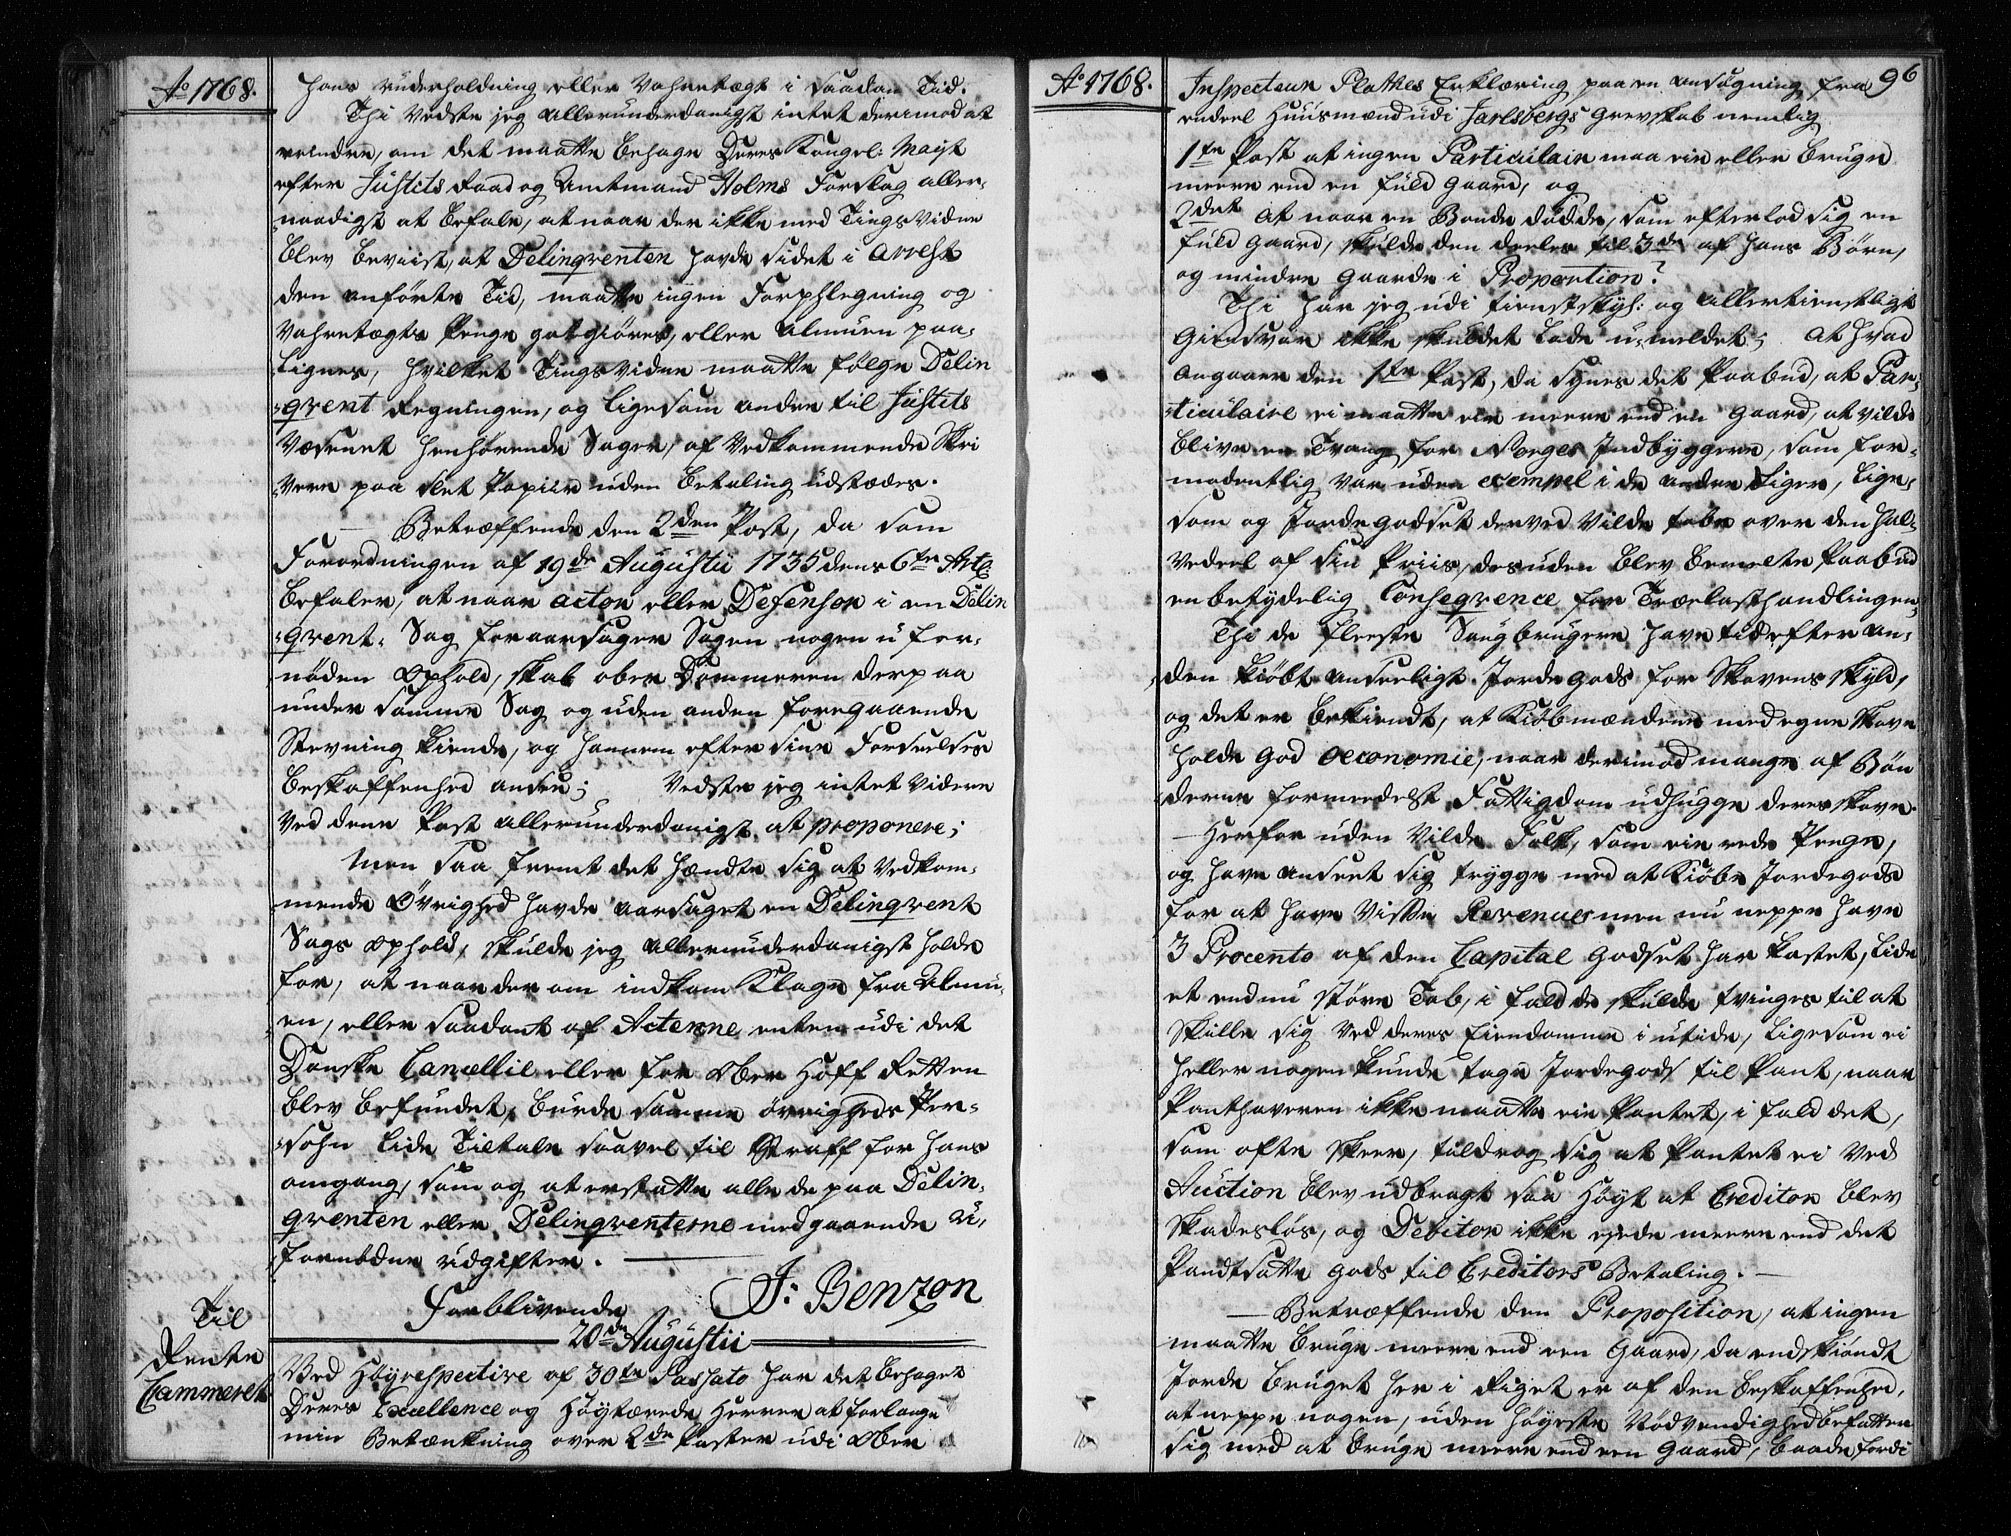 Ao 1768.
hans underholdning eller Vahretægt i saadan Tid.
Thi Vedste jeg allerunderdanigst intet derimod at
erindre, om det maatte behage Deres Kongel: Mayt
efter Justits Raad og Amtmand Holms Forslag aller-
naadigst at befale, at naar der ikke med Tings Vidne
blev beviist, at Delinqventen havde sidet i Arrest
den anførte Tid, maatte ingen Forpflegning og
Vahretægts Penge godtgiøres, eller Almuen paa-
lignes, hvilket Tings Vidne maatte følge Delin
-qvent Regningen, og ligesom andre til Justits
Væsenet henhørende Sager, af Vedkommende Skri
Vere paa slet Papiir uden betaling udstædes.
Betræffende den 2den Post, da som
Forordningen af 19de Augustii 1735 dens 6te Artl
befaler, at naar actor eller Defensor i en Delin
-qvent- Sag foraarsager Sagen nogen u for-
nøden Ophold, skal ober Dommeren derpaa
under samme Sag og uden anden foregaaende
Stevning kiende, og hannem efter sine Forseelses
beskaffenhed ansee; Vedste jeg intet videre
Ved denne Post allerunderdanigst at proponere;
Men saa fremt det hændte sig at Vedkom-
mende Øvrighed havde aarsaget en Delinqvent
Sags Ophold, skulde jeg allerunderdanigst holde
for, at naar der om indkom Klage fra Almu-
en, eller saadant af Acterne enten udi det
Danske Cancellie eller for Ober Hoff Retten
blev befundet, burde samme øvrigheds Per-
-sohn lide Tiltale saavel til Straff for hans
omgang, som og at erstatte alle de paa Delin-
qventen eller Delinqventerne medgaaende u-
fornødne udgifter.
Forblivende J: Benzon
20de Augustii
Til
Rente
Cammeret
Ved Høyrespective af 30te Passato har det behaget
Deres Excellence og Høytærede Herrer at forlange
min Betænkning over 2de Poster udi Ober
Ao 1768.
96
Inspecteur Plathes Erklæring paa en ansøgning fra
endeel Huusmænd udi Jarlsbergs Grevskab nemlig
1te Post at ingen Particulair maa eie eller bruge
meere end en fuld gaard, og
2det at naar en Bonde døde, som efterlod sig en
fuld gaard, skulde den deeles til 3de af hans Børn,
og mindre gaarde i Proportion?
Thi har jeg udi tienstskyl: og allertienstligst
Giensvar ikke skuldet lade u-meldet; at hvad
angaaer den 1te Post, da synes det Paabud, at Par-
-ticulaire ei maatte eie meere end en gaard, at vilde
blive en Tvang for Norges Indbyggere, som for-
modentlig var uden exempel i de andre Riger, lige-
som og Jordegodset derved vilde tabe over den hal-
vedeel af sin Priis, desuden blev bemelte Paabud
en betydelig Conseqvence for Trælasthandlingen,
Thi de fleeste Saugbrugere have tid efter an-
den kiøbt anseeligt Jordegods for Skovens skyld,
og det er bekiendt, at Kiøbmændene med egne skove
holde god oeconomie, naar derimod mange af Bøn
derne formedelst Fattigdom udhugge deres skove.
Herfor uden vilde Folk, som eie rede Penge,
og have anseet sig trygge med at Kiøbe Jordegods
for at have visse Revenues men nu neppe have
3 Procento af den Capital godset har kostet, lide
et endnu støre Tab, i fald de skulde tvinges til at
skille sig ved deres Eiendomme i utide, ligesom ei
heller nogen kunde tage Jordegods til Pant, naar
Panthaveren ikke maatte eie Pantet, i fald det,
som ofte skeer, tildrog sig at Pantet ei ved
Auction blev udbragt saa høyt at Creditor blev
skadesløs, og Debitor ikke eyede meere end det
Pandtsatte gods til Creditors Betaling.
Betræffende den Proposition, at ingen
maatte bruge meere end een Gaard, da endskiøndt
Jorde bruget her i Riget er af den beskaffenhed,
at neppe nogen, uden høyeste Nødvendighed befatter
sig med at bruge meere end een Gaard, baade fordi